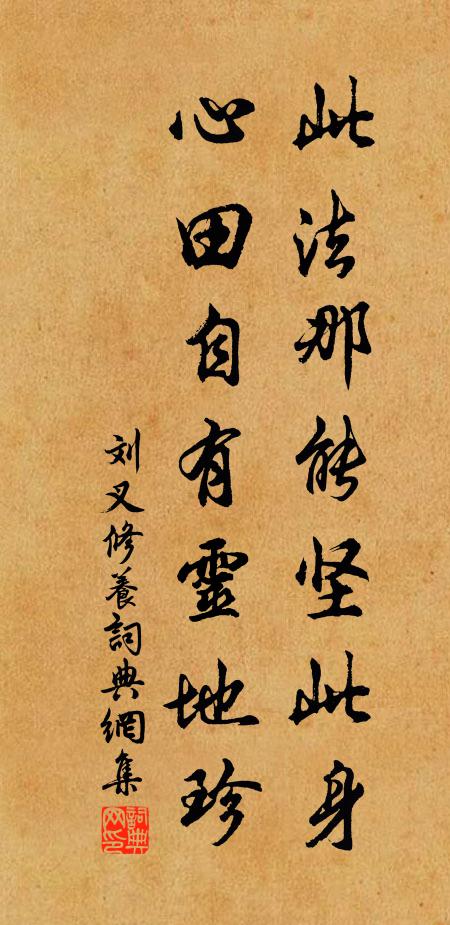 此法那能坚此身
心田自有靈地珍
刘叉修養詞典網集
詞典网印